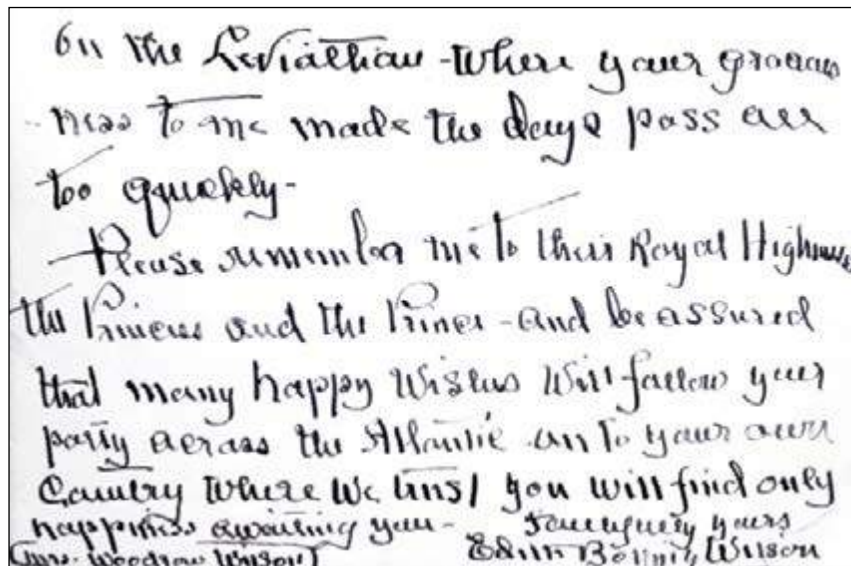 on the Leviathan - Where your gracious
ness to me made the days pass all
too quickly -
Please remember me to their Royal Highnesses
the Princess and the Prince - and be assured
that many happy Wishes Will follow your
party across the Atlantic on to your own
Country Where We trust you will find only
happiness awaiting you - yours
(Mrs. Woodrow Wilson) Edith Bolling Wilson